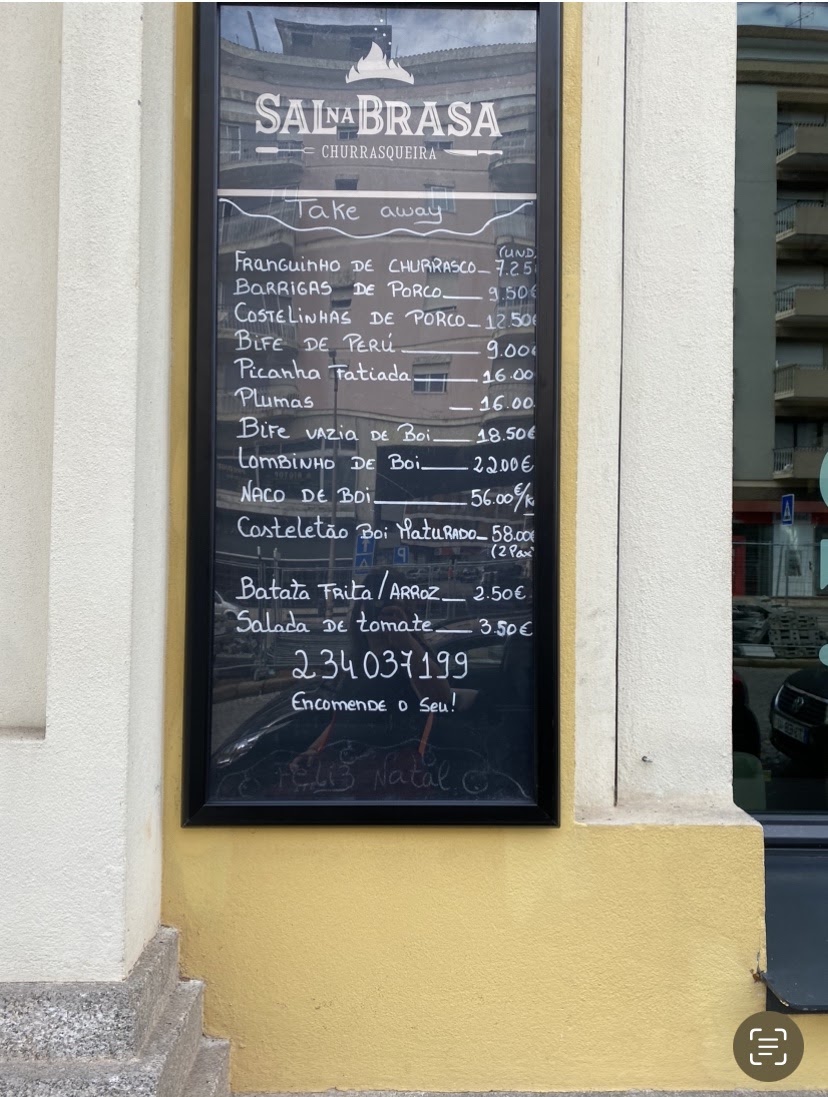 SAL NA BRASA
CHURRASQUEIRA
Take away
(UND
FRANGUINHO DE CHURRASCO_ 7.25
BARRIGAS DE PORCO___ 9.50€
COSTELINHAS DE PORCO_ 12.50€
BIFE DE PERÚ___ 9.00€
Picanha Fatiada___ 16.00
Plumas __ 16.00
Bife VAZIA DE Boi___ 18.50€
LOMBINHO DE Boi___ 22.00€
NACO DE BOi___ 56.00€/K
Costeletão Boi MATURADO_ 58.00€
(2 Pax
Batata Frita / ARROZ__ 2.50€
Salada DE tomate___ 3.50€
234037199
Encomende o Seu!
FELIZ Natal